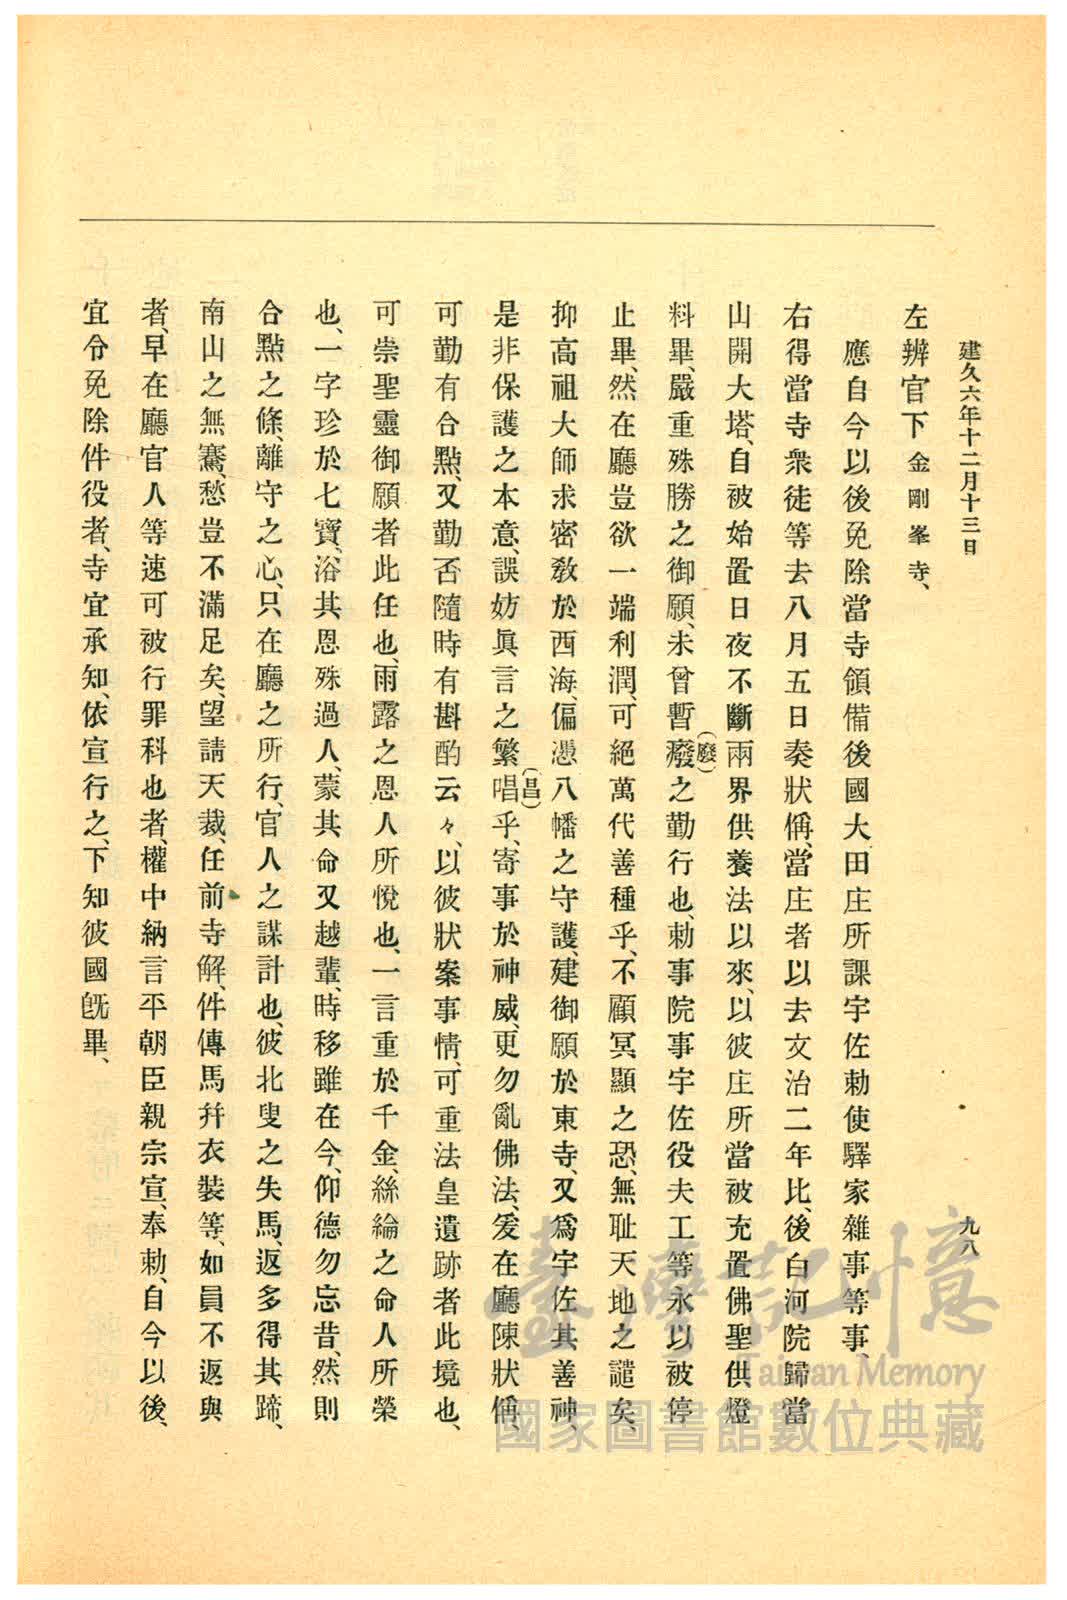 建久六年十二月十三日
九八
左辨官下金剛峯寺、
應自今以後免除當寺領備後國大田庄所課宇佐勅使驛家雜事等事、
右得當寺衆徒等去八月五日奏狀偁、當庄者以去文治二年比、後白河院歸當
山開大塔、自被始置日夜不斷兩界供養法以來、以彼庄所當被充置佛聖供燈
料畢、嚴重殊勝之御願、未曾暫癈(廢)之勤行也、勅事院事宇佐役夫工等永以被停
止畢、然在廳豈欲一端利潤、可絕萬代善種乎、不顧冥顯之恐、無耻天地之譴矣、
抑高祖大師求密敎於西海、偏憑八幡之守護、建御願於東寺、又爲宇佐其善神、
是非保護之本意、誤妨眞言之繁唱(昌)乎、寄事於神威、更勿亂佛法、爰在廳陳狀偁、
可勤有合點、又勤否隨時有斟酌云々、以彼狀案事情、可重法皇遺跡者此境也、
可崇聖靈御願者此任也、雨露之恩人所悅也、一言重於千金、絲綸之命人所榮
也、一字珍於七寶、浴其恩殊過人、蒙其命又越輩、時移雖在今、仰德勿忘昔、然則
合點之條、離守之心、只在廳之所行、官人之謀計也、彼北叟之失馬、返多得其蹄、
南山之無騫、愁豈不滿足矣、望請天裁、任前寺解、件傳馬幷衣裝等、如員不返與
者、早在廳官人等速可被行罪科也者、權中納言平朝臣親宗宣、奉勅、自今以後、
宜令免除件役者、寺宜承知、依宣行之、下知彼國旣畢、
臺灣記憶
Taiwan Memory
國家圖書館數位典藏